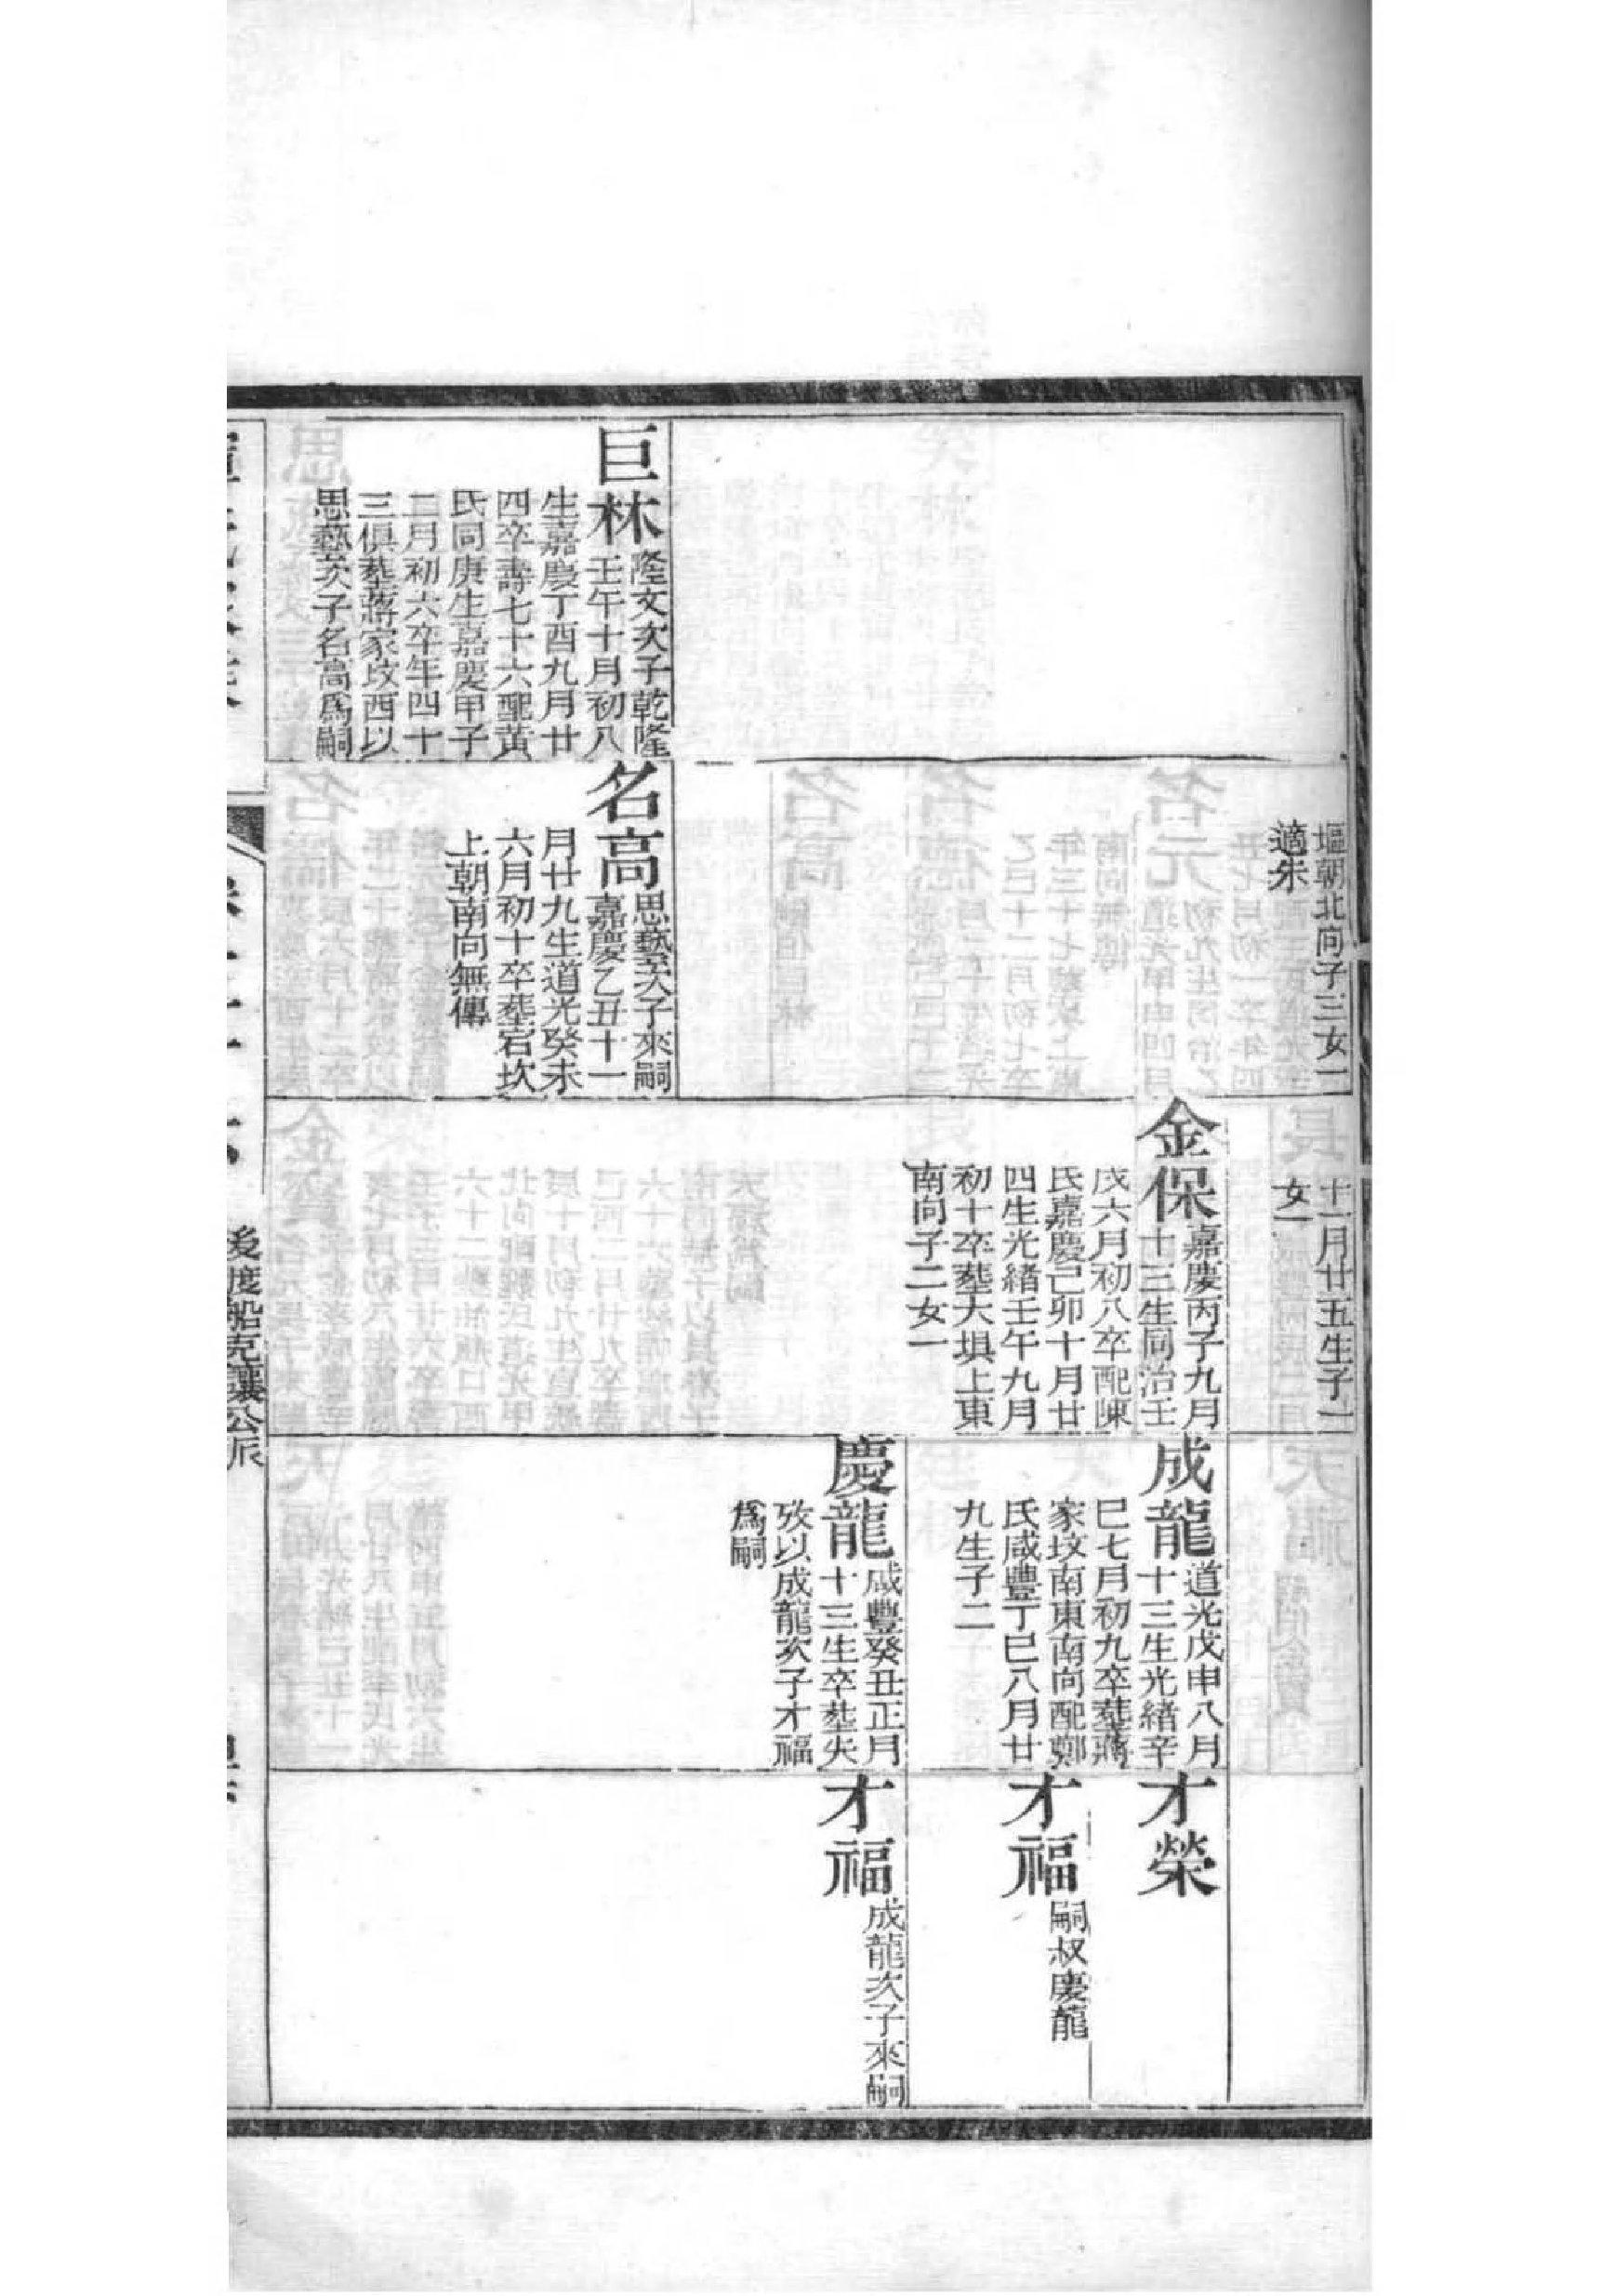 巨林
隆文次子乾隆
壬午十月初八
生嘉慶丁酉九月廿
四卒壽七十六配黃
氏同庚生嘉慶甲子
二月初六卒年四十
三俱塟蔣家坟西以
思藝次子名高爲嗣
塸朝北向子三女一
適朱
名高
思藝次子來嗣
嘉慶乙丑十一
月廿九生道光癸未
六月初十卒塟宕坎
上朝南向無傳
十一月廿五生子一
女一
金保
嘉慶丙子九月
十三生同治壬
戊六月初八卒配陳
氏嘉慶己卯十月廿
四生光緒壬午九月
初十卒塟大垻上東
南向子二女一
成龍
道光戊申八月
十三生光緒辛
巳七月初九卒塟蔣
家坟南東南向配鄭
氏咸豐丁巳八月廿
九生子二
慶龍
咸豐癸丑正月
十三生卒塟失
攷以成龍次子才福
爲嗣
才榮
才福
嗣叔慶龍
才福
成龍次子來嗣
後度船克讓公派